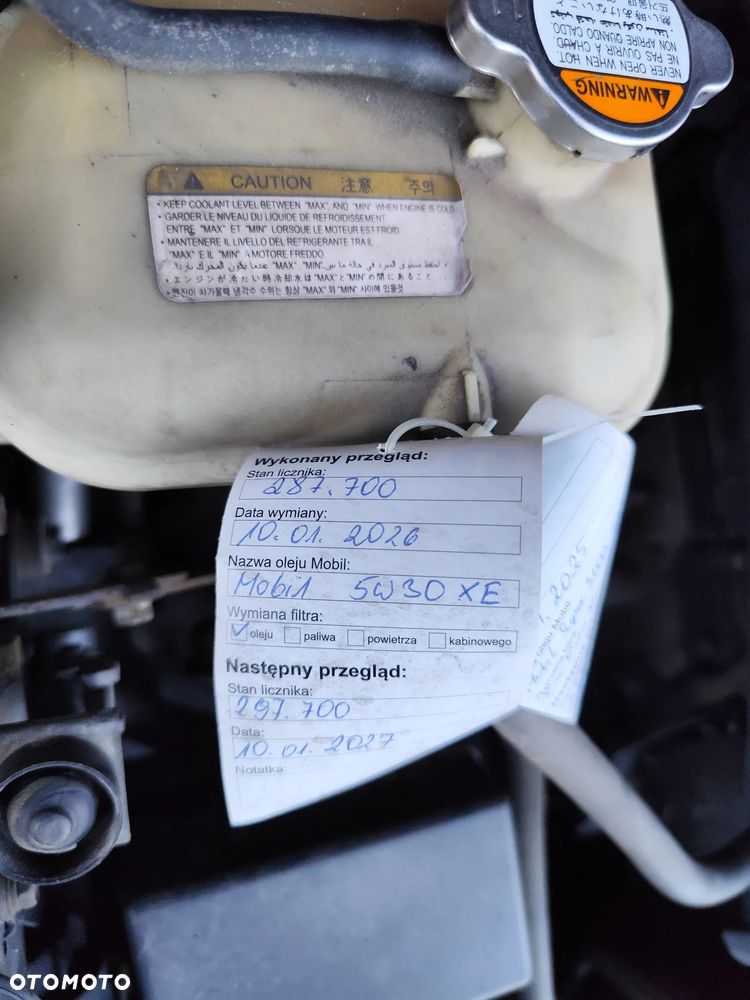 WARNING
NEVER OPEN WHEN HOT
NE PAS OUVRIR À CHAUD
NON APRIRE QUANDO CALDO
熱い時あけないこと
CAUTION 注意 주의
• KEEP COOLANT LEVEL BETWEEN "MAX" AND "MIN" WHEN ENGINE IS COLD
• GARDER LE NIVEAU DU LIQUIDE DE REFROIDISSEMENT
ENTRE "MAX" ET "MIN" LORSQUE LE MOTEUR EST FROID
• MANTENERE IL LIVELLO DEL REFRIGERANTE TRA IL
"MAX" E IL "MIN" A MOTORE FREDDO
• احفظ مستوى المبرد في حالة ما بين "MAX" "MIN" عندما يكون المحرك باردا
• エンジンが冷たい時冷却水は"MAX"と"MIN"の間にあること
• 엔진이 차가울때 냉각수 수위는 항상 "MAX" 와 "MIN" 사이에 있을것
Wykonany przegląd:
Stan licznika:
287.700
Data wymiany:
10.01.2026
Nazwa oleju Mobil:
Mobil 5W30 XE
Wymiana filtra:
oleju paliwa powietrza kabinowego
Następny przegląd:
Stan licznika:
297.700
Data:
10.01.2027
Notatka:
2025
oleju Mobil
OTOMOTO